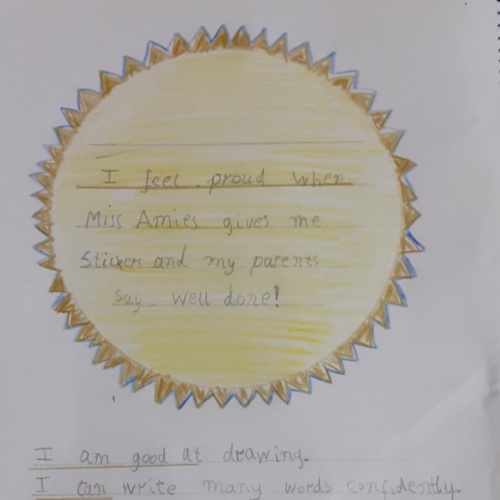 I feel proud when
Miss Amies gives me
Stickers and my parents
Say well done!
I am good at drawing.
I can write many words confidently.